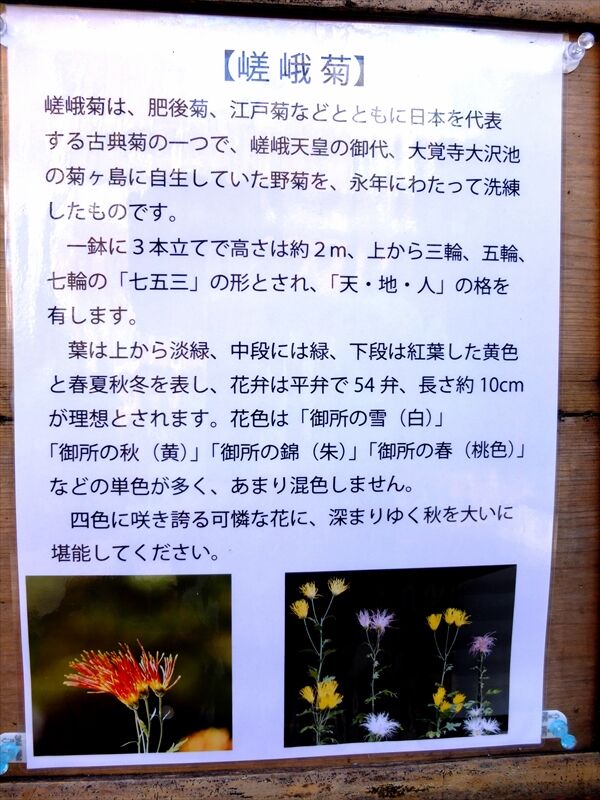 【嵯峨菊】
嵯峨菊は、肥後菊、江戸菊などとともに日本を代表
する古典菊の一つで、嵯峨天皇の御代、大覚寺大沢池
の菊ヶ島に自生していた野菊を、永年にわたって洗練
したものです。
一鉢に３本立てで高さは約２ｍ、上から三輪、五輪、
七輪の「七五三」の形とされ、「天・地・人」の格を
有します。
葉は上から淡緑、中段には緑、下段は紅葉した黄色
と春夏秋冬を表し、花弁は平弁で 54 弁、長さ約 10cm
が理想とされます。花色は「御所の雪（白）」
「御所の秋（黄）」「御所の錦（朱）」「御所の春（桃色）」
などの単色が多く、あまり混色しません。
四色に咲き誇る可憐な花に、深まりゆく秋を大いに
堪能してください。